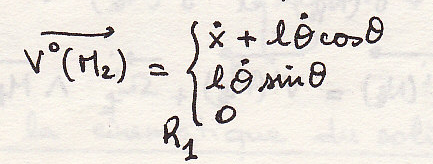 V⁰(M₂) = { ẋ + lθ̇ cosθ
lθ̇ sinθ
0
R₁